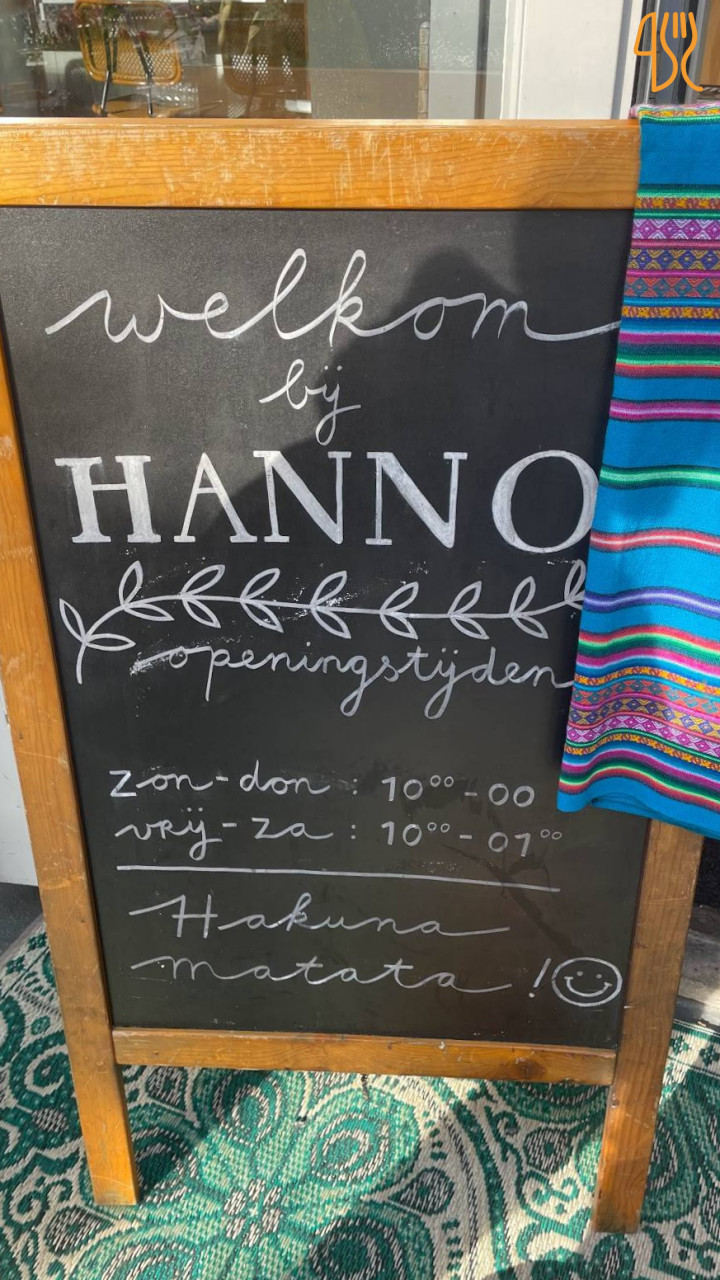 welkom
bij
HANNO
openingstijden
zon-don : 10⁰⁰-00
vrij-za : 10⁰⁰-01⁰⁰
Hakuna
matata !